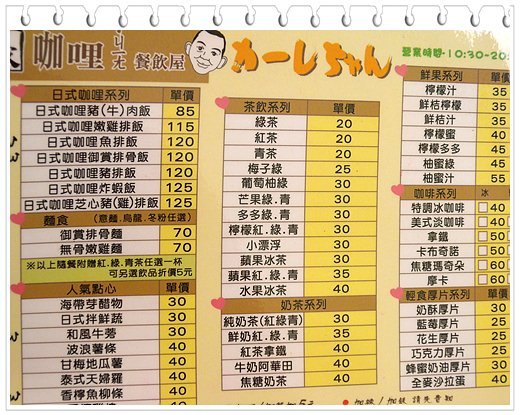 咖哩ㄐㄧㄤ 餐飲屋
かーしちゃん
營業時間·10:30~20:
日式咖哩系列 單價
日式咖哩豬(牛)肉飯 85
日式咖哩嫩雞排飯 115
日式咖哩魚排飯 120
日式咖哩御賞排骨飯 120
日式咖哩豬排飯 120
日式咖哩炸蝦飯 125
日式咖哩芝心豬(雞)排飯 125
麵食 (意麵.烏龍.冬粉任選) 單價
御賞排骨麵 70
無骨嫩雞麵 70
※以上隨餐附贈紅.綠.青茶任選一杯
可另選飲品折價5元
人氣點心 單價
海帶芽醋物 30
日式拌鮮蔬 30
和風牛蒡 30
波浪薯條 40
甘梅地瓜薯 40
泰式天婦羅 40
香檸魚柳條 40
茶飲系列 單價
綠茶 20
紅茶 20
青茶 20
梅子綠 25
葡萄柚綠 30
芒果綠.青 30
多多綠.青 30
檸檬紅.綠.青 30
小漂浮 30
蘋果冰茶 30
蘋果紅.綠.青 35
水果冰茶 40
奶茶系列 單價
純奶茶(紅綠青) 30
鮮奶紅.綠.青 35
紅茶拿鐵 40
牛奶阿華田 40
焦糖奶茶 40
鮮果系列 單價
檸檬汁 35
鮮桔檸檬 35
鮮桔汁 35
檸檬蜜 40
檸檬多多 45
柚蜜綠 45
柚蜜汁 55
咖啡系列 冰
特調冰咖啡 40
美式淡咖啡 40
拿鐵 50
卡布奇諾 50
焦糖瑪奇朵 60
摩卡 60
輕食厚片系列 單價
奶酥厚片 30
藍莓厚片 25
花生厚片 25
巧克力厚片 25
蜂蜜奶油厚片 30
全麥沙拉蛋 40